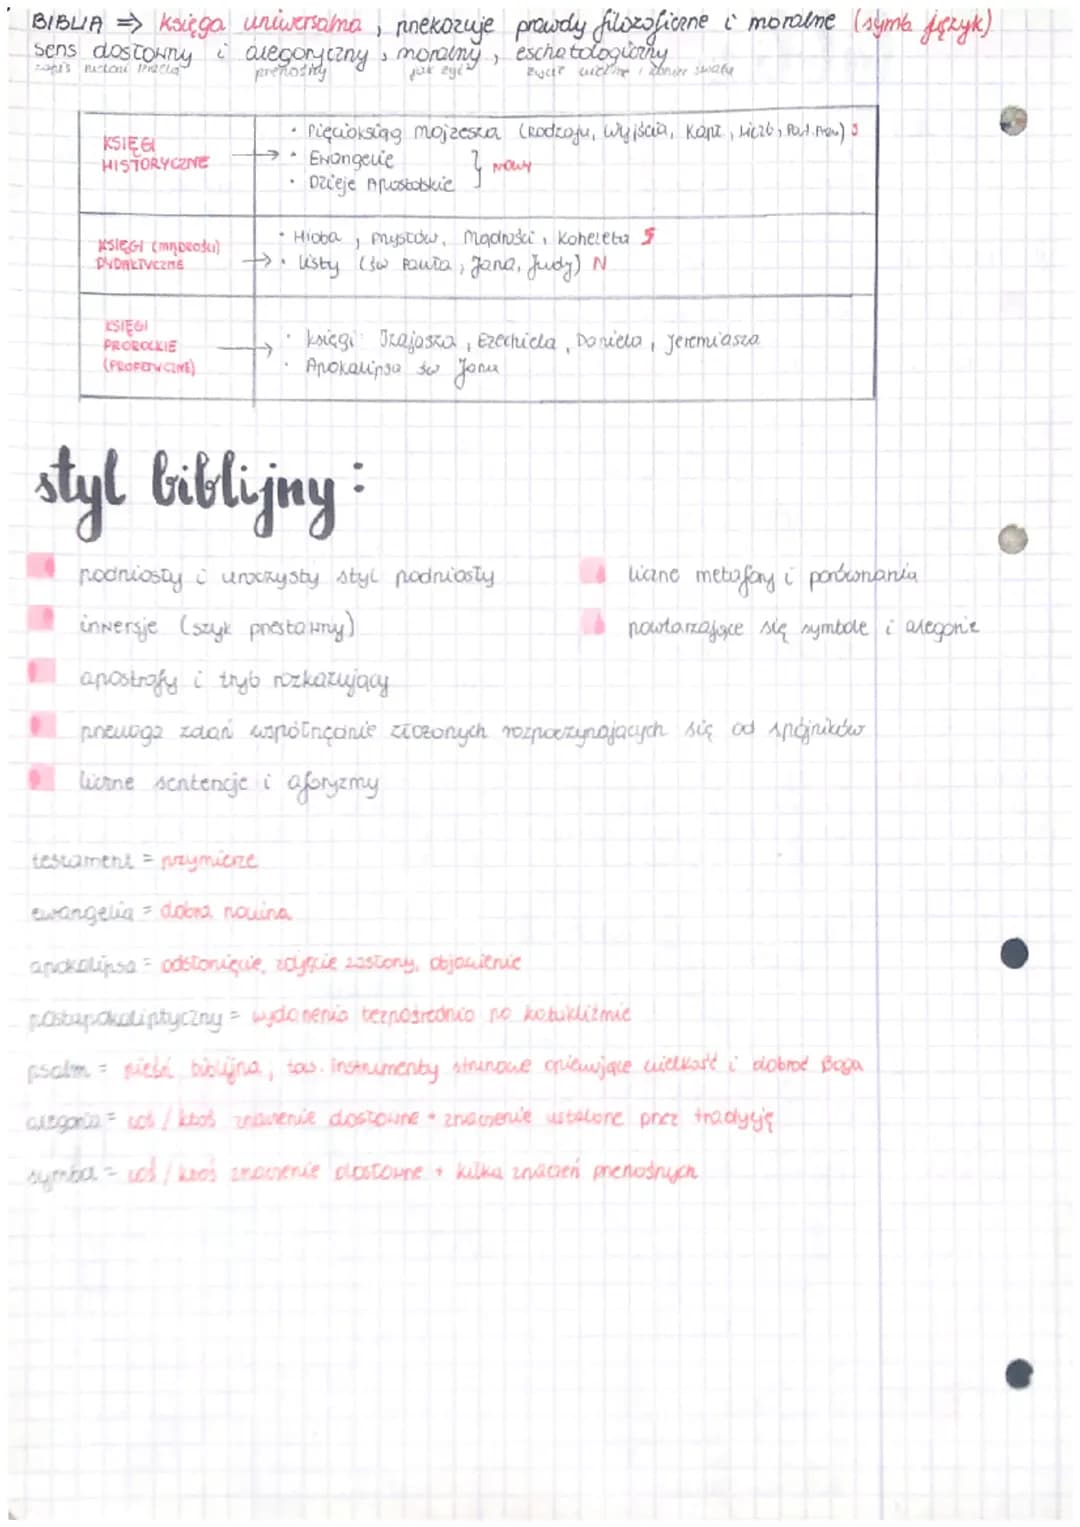 BIBLIA => księga uniwersalna, przekazuje prawdy filozoficzne i moralne (symb język)
sens dosłowny i alegoryczny, moralny, eschatologiczny
zapis przenośny jak żyć życie wieczne i koniec świata
KSIĘGI HISTORYCZNE
· Pięcioksiąg Mojżesza (Rodzaju, Wyjścia, Kapł, Liczb, Powt. Praw) S
· Ewangelie
· Dzieje Apostolskie } NOWY
KSIĘGI (mądrości) DYDAKTYCZNE
· Hioba, Psysłów, Mądrości, Koheleta S
· Listy (św Pawła, Jana, Judy) N
KSIĘGI PROROCKIE (PROFETYCZNE)
· księgi: Izajasza, Ezechiela, Daniela, Jeremiasza
· Apokalipsa św Jana
styl biblijny:
podniosły i uroczysty styl podniosły
inwersje (szyk przestawny)
apostrofy i tryb rozkazujący
przewaga zdań współrzędnie złożonych rozpoczynających się od spójników
liczne sentencje i aforyzmy
liczne metafory i porównania
powtarzające się symbole i alegorie
testament = przymierze
ewangelia = dobra nowina
apokalipsa = odsłonięcie, zdjęcie zasłony, objawienie
postapokaliptyczny = wydarzenia bezpośrednio po kataklizmie
psalm = pieśń biblijna, tow. instrumenty strunowe opiewające wielkość i dobroć Boga
alegoria = coś / ktoś znaczenie dosłowne + znaczenie ustalone przez tradycję
symbol = coś / ktoś znaczenie dosłowne + kilka znaczeń przenośnych